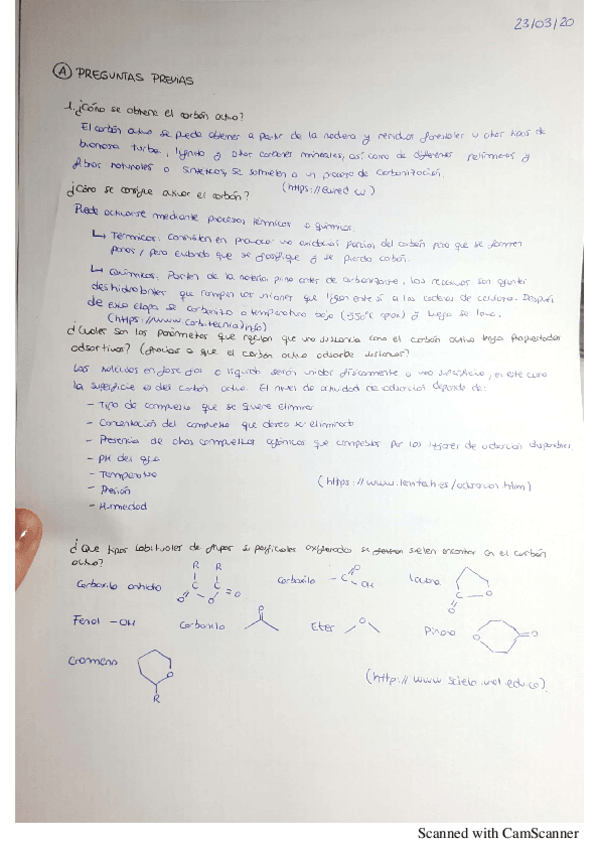 23/03/20
A PREGUNTAS PREVIAS
1. ¿Cómo se obtiene el carbón activo?
El carbón activo se puede obtener a partir de la madera y residuos forestales u otros tipos de
biomasa, turba, lignito y otros carbones minerales, así como de diferentes polímeros y
fibras naturales o sintéticas, se someten a un proceso de carbonización.
¿Cómo se consigue activar el carbón?
Puede activarse mediante procesos térmicos o químicos.
↳ Térmicos: Consisten en provocar una oxidación parcial del carbón para que se formen
poros, pero evitando que se gasifique y se pierda carbón.
↳ Químicos: Parten de la materia prima antes de carbonizarse. Los reactivos son agentes
deshidratantes que rompen las uniones que ligan entre sí a las cadenas de celulosa. Después
de esta etapa se carboniza a temperatura baja (550ºC aprox) y luego se lava.
¿Cuáles son los parámetros que regulan que una sustancia como el carbón activo tenga propiedades
adsortivas? (¿Gracias a que el carbón activo adsorbe
Las moléculas en fase gas o líquida serán unidas físicamente a una superficie, en este caso
la superficie es del carbón activo. El nivel de actividad de adsorción depende de:
- Tipo de compuesto que se quiere eliminar
- Concentración del compuesto que desea ser eliminado
- Presencia de otros compuestos orgánicos que compiten por los lugares de adsorción disponibles
- PH del
- Temperatura
- Presión
- Humedad
¿Que tipos habituales de grupos superficiales oxigenados se suelen encontrar en el carbón
activo?
R R
Carboxilo anhidro C C O O =O
Carboxilo -C O OH
Lactona C O O
Fenol -OH
Carbonilo O
Eter O
Pirona O =O
Cromeno O R
(http://www.scielo.
Scanned with CamScanner